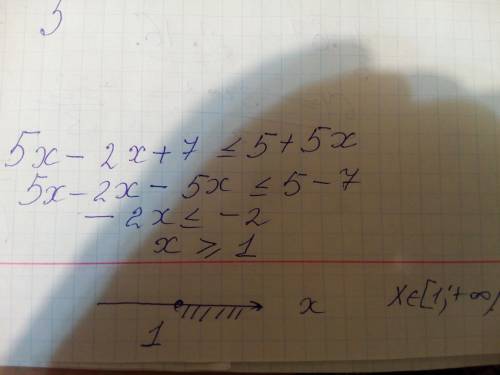 5x - 2x + 7 ≤ 5 + 5x
5x - 2x - 5x ≤ 5 - 7
- 2x ≤ - 2
x ≥ 1
1 x x∈[1;+∞)